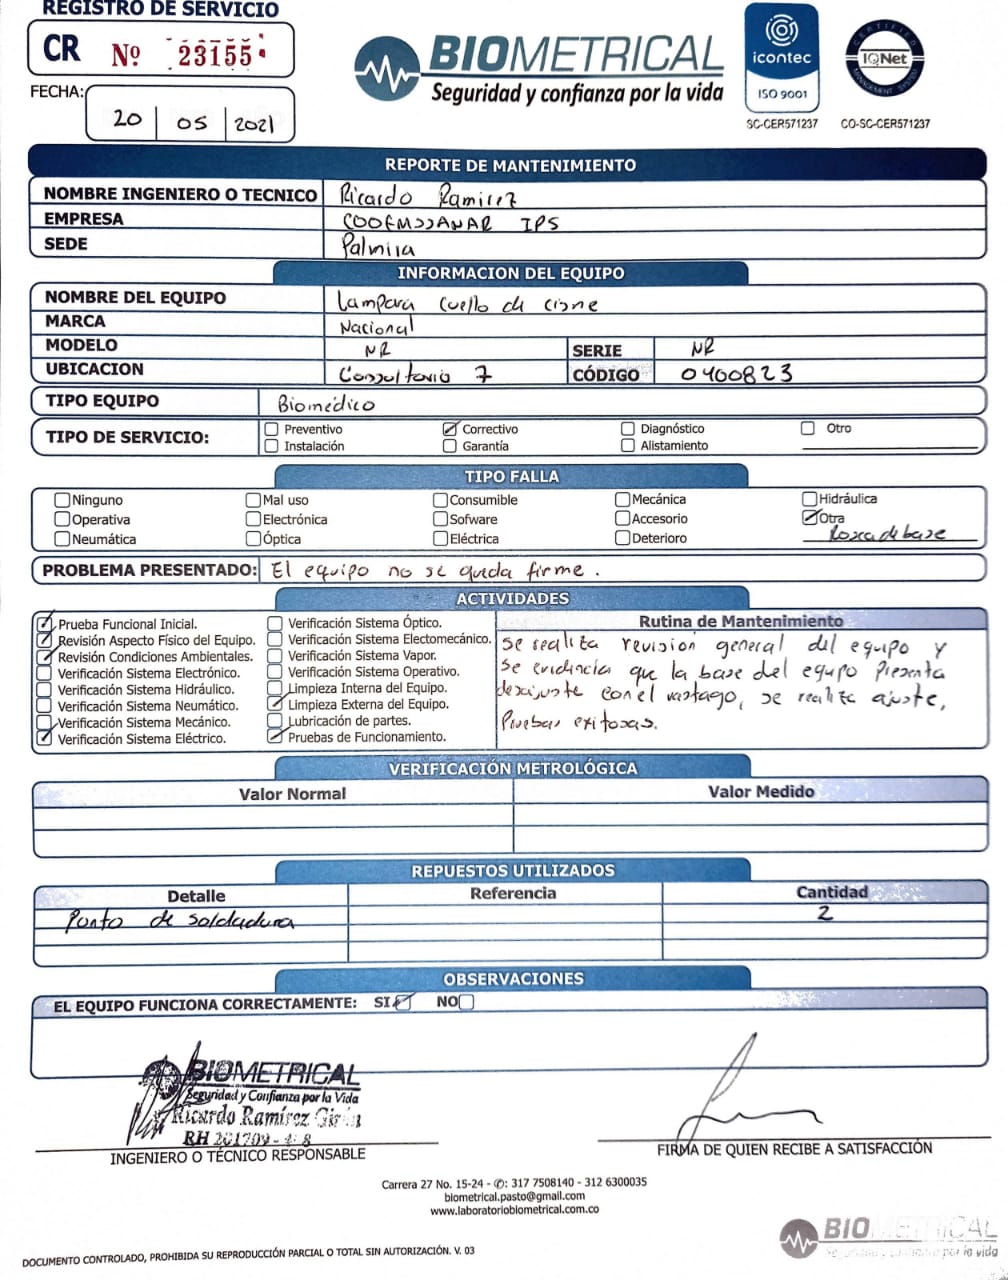 REGISTRO DE SERVICIO
CR Nº 23155
FECHA: 20 05 2021
BIOMETRICAL
Seguridad y confianza por la vida
icontec
ISO 9001
SC-CER571237
CERTIFIED
IQNet
MANAGEMENT SYSTEM
CO-SC-CER571237
REPORTE DE MANTENIMIENTO
NOMBRE INGENIERO O TECNICO Ricardo Ramirez
EMPRESA COOEMSSANAR IPS
SEDE Palmira
INFORMACION DEL EQUIPO
NOMBRE DEL EQUIPO Lampara cuello de cisne
MARCA Nacional
MODELO NR SERIE NR
UBICACION Consultorio 7 CÓDIGO 0400823
TIPO EQUIPO Biomédico
TIPO DE SERVICIO: Preventivo Correctivo Diagnóstico Otro
Instalación Garantía Alistamiento
TIPO FALLA
Ninguno Mal uso Consumible Mecánica Hidráulica
Operativa Electrónica Sofware Accesorio Otra
Neumática Óptica Eléctrica Deterioro Rosca de base
PROBLEMA PRESENTADO: El equipo no se queda firme.
ACTIVIDADES
Prueba Funcional Inicial.
Revisión Aspecto Físico del Equipo.
Revisión Condiciones Ambientales.
Verificación Sistema Electrónico.
Verificación Sistema Hidráulico.
Verificación Sistema Neumático.
Verificación Sistema Mecánico.
Verificación Sistema Eléctrico.
Verificación Sistema Óptico.
Verificación Sistema Electomecánico.
Verificación Sistema Vapor.
Verificación Sistema Operativo.
Limpieza Interna del Equipo.
Limpieza Externa del Equipo.
Lubricación de partes.
Pruebas de Funcionamiento.
Rutina de Mantenimiento
se realiza revisión general del equipo y
se evidencia que la base del equipo presenta
desajuste con el vastago, se realiza ajuste,
Pruebas exitosas.
VERIFICACIÓN METROLÓGICA
Valor Normal Valor Medido
REPUESTOS UTILIZADOS
Detalle Referencia Cantidad
Punto de soldadura 2
OBSERVACIONES
EL EQUIPO FUNCIONA CORRECTAMENTE: SI NO
BIOMETRICAL
Seguridad y Confianza por la Vida
Ricardo Ramírez Girón
INGENIERO O TÉCNICO RESPONSABLE
FIRMA DE QUIEN RECIBE A SATISFACCIÓN
Carrera 27 No. 15-24 - ✆: 317 7508140 - 312 6300035
biometrical.pasto@gmail.com
www.laboratoriobiometrical.com.co
BIOMETRICAL
Seguridad y confianza por la vida
DOCUMENTO CONTROLADO, PROHIBIDA SU REPRODUCCIÓN PARCIAL O TOTAL SIN AUTORIZACIÓN. V. 03